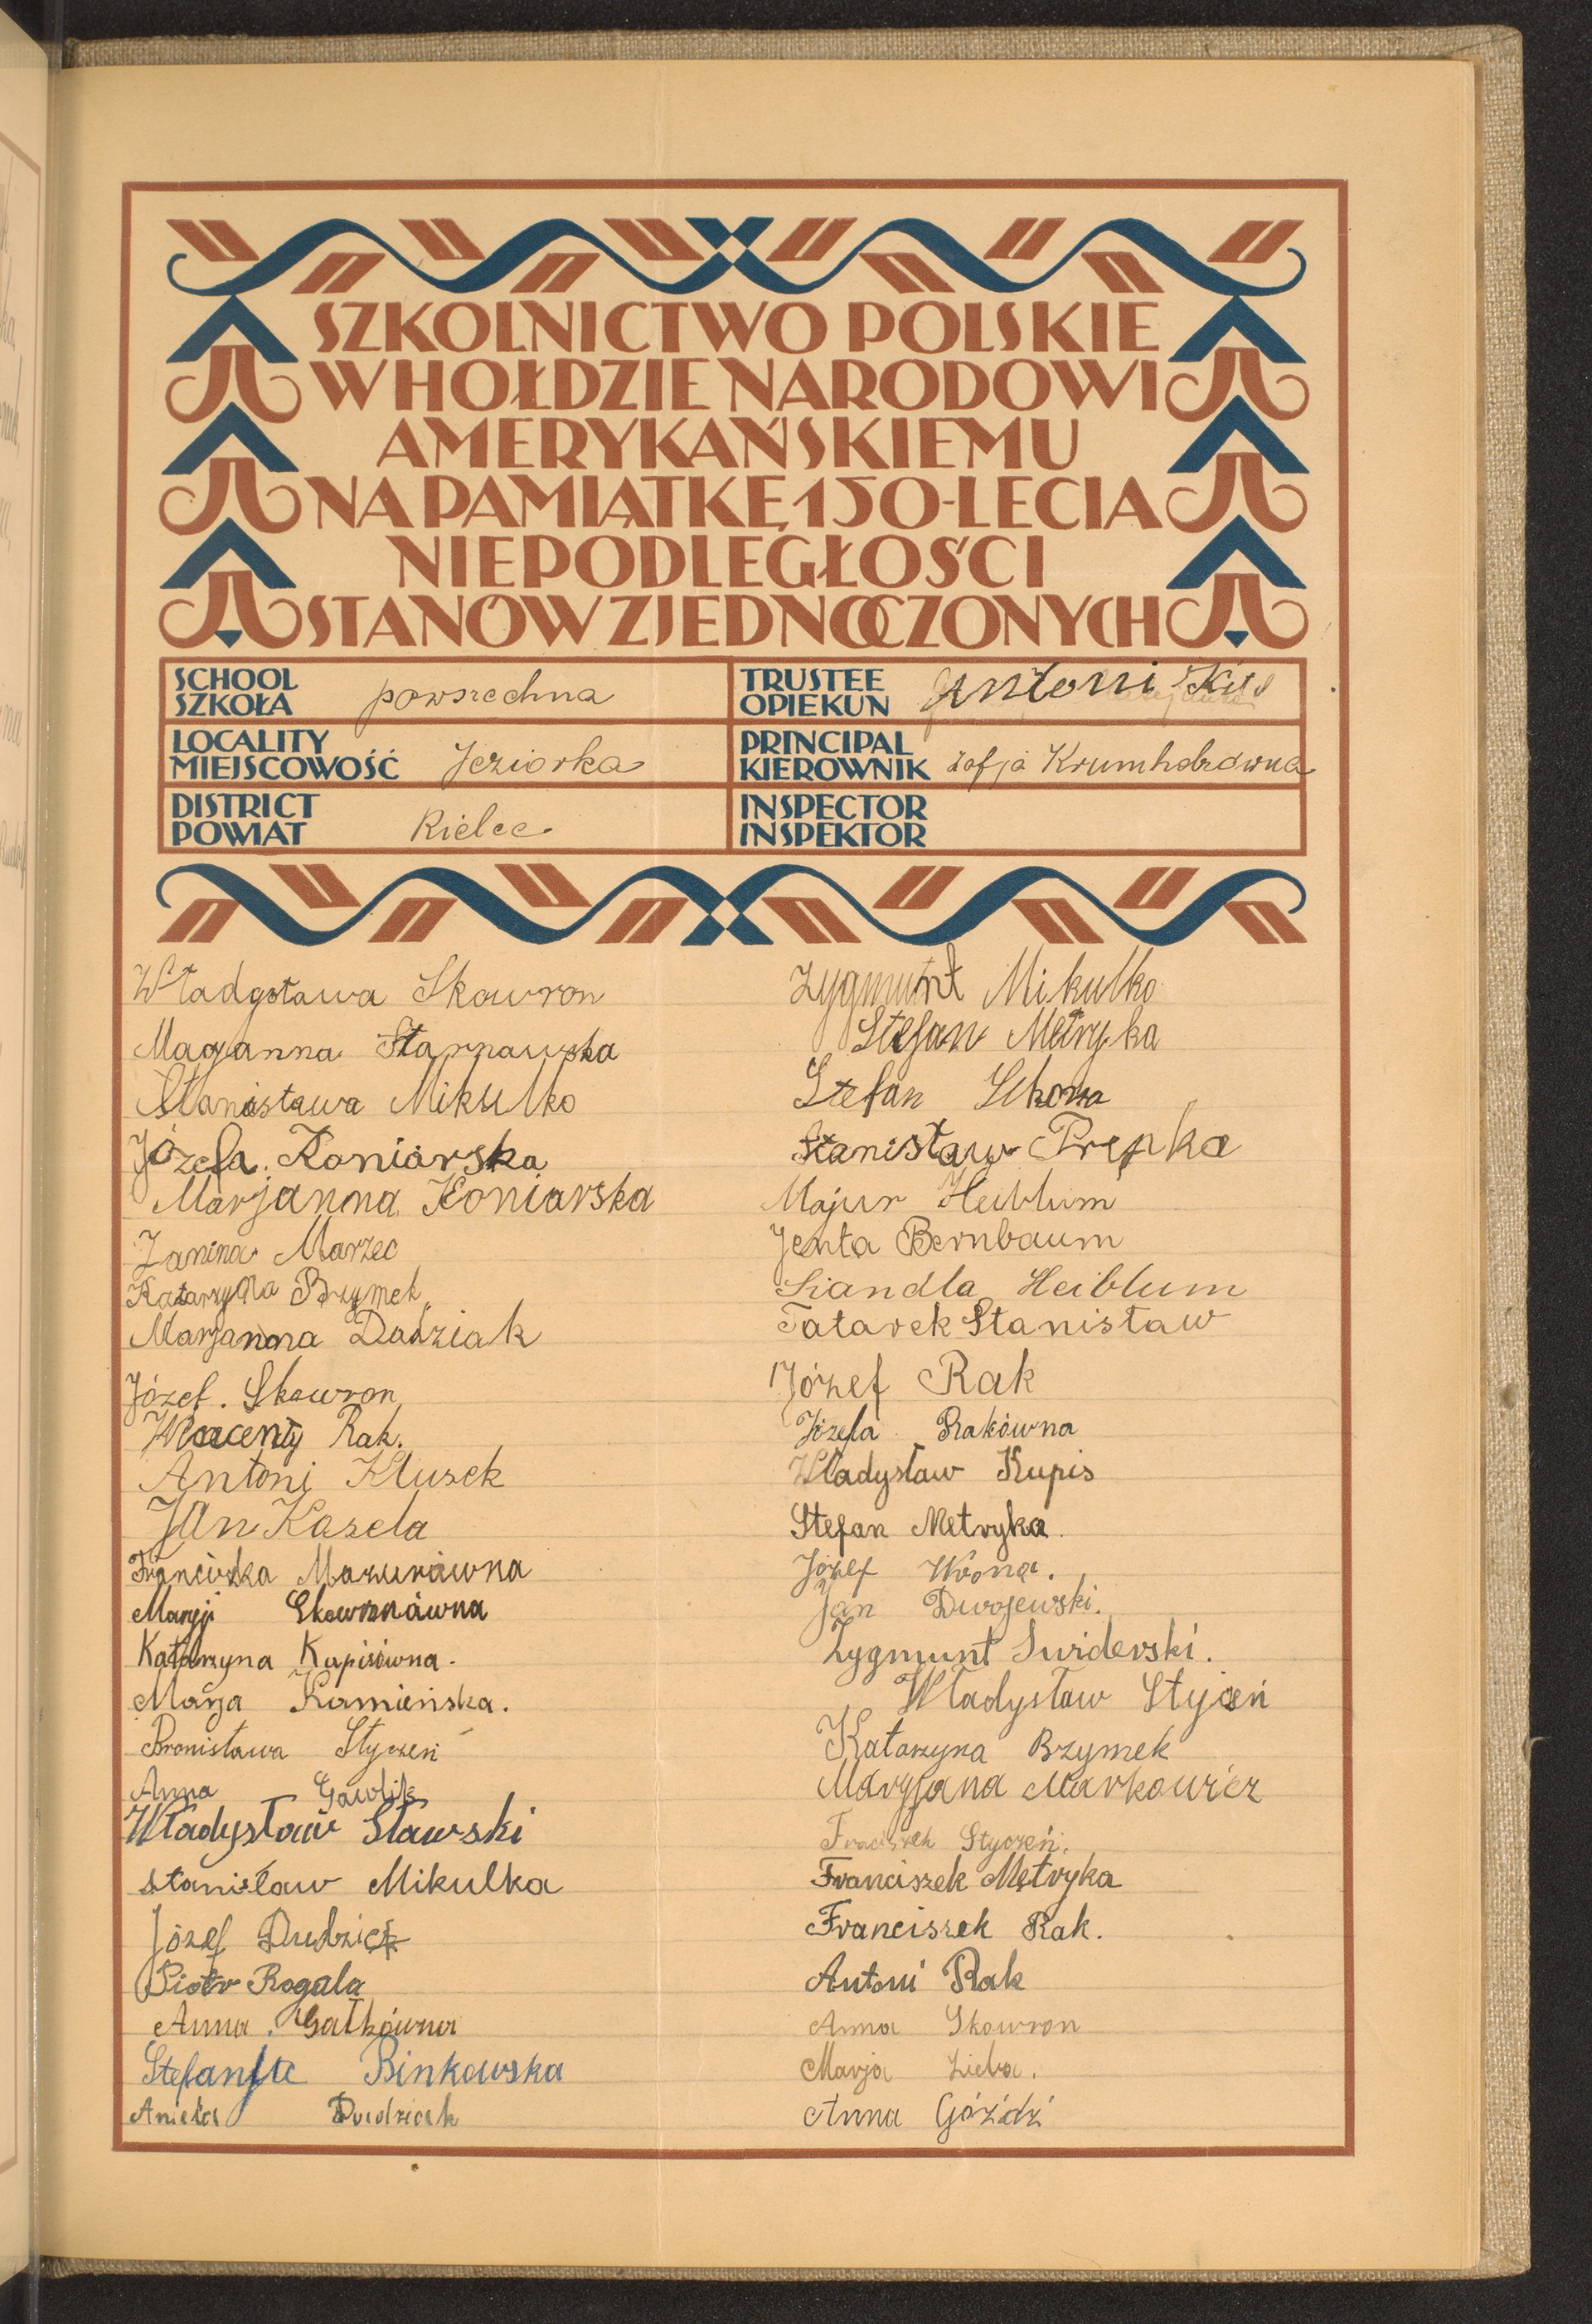 SZKOLNICTWO POLSKIE
W HOŁDZIE NARODOWI
AMERYKAŃSKIEMU
NA PAMIĄTKĘ 150-LECIA
NIEPODLEGŁOŚCI
STANÓW ZJEDNOCZONYCH
SCHOOL
SZKOŁA powszechna
LOCALITY
MIEJSCOWOŚĆ Jeziorka
DISTRICT
POWIAT Kielce
TRUSTEE
OPIEKUN Antoni
PRINCIPAL
KIEROWNIK Zofja Krumholzówna
INSPECTOR
INSPEKTOR
Władysława Skowron
Maryanna Starnawska
Stanisława Mikulko
Józefa. Koniarska
Marjanna Koniarska
Janina Marzec
Katarzyna Brzymek
Marjanna Dudziak
Józef. Skowron
Wincenty Rak.
Antoni Klusek
Jan Kasela
Franciszka Mazurówna
Maryji Skowronówna
Katarzyna Kupisówna.
Marja Kamieńska.
Bronisława Styczeń
Anna Gawlik
Władysław Sławski
Stanisław Mikulka
Józef Dudzick
Piotr Rogala
Anna. Gałkówna
Stefanja Binkowska
Aniela Dudziak
Zygmunt Mikulko
Stefan Metryka
Stefan
Stanisław Prepka
Majur Heiblum
Jenta Bernbaum
Siandla Heiblum
Tatarek Stanisław
Józef Rak
Józefa Rakówna
Władysław Kupis
Stefan Metryka.
Józef Wrona.
Jan Dwojewski.
Zygmunt Swiderski.
Władysław Styczeń
Katarzyna Brzymek
Maryjana Markowicz
Franciszek Styczeń.
Franciszek Metryka
Franciszek Rak.
Antoni Rak
Anna Skowron
Marja Zieba.
Anna Góźdź